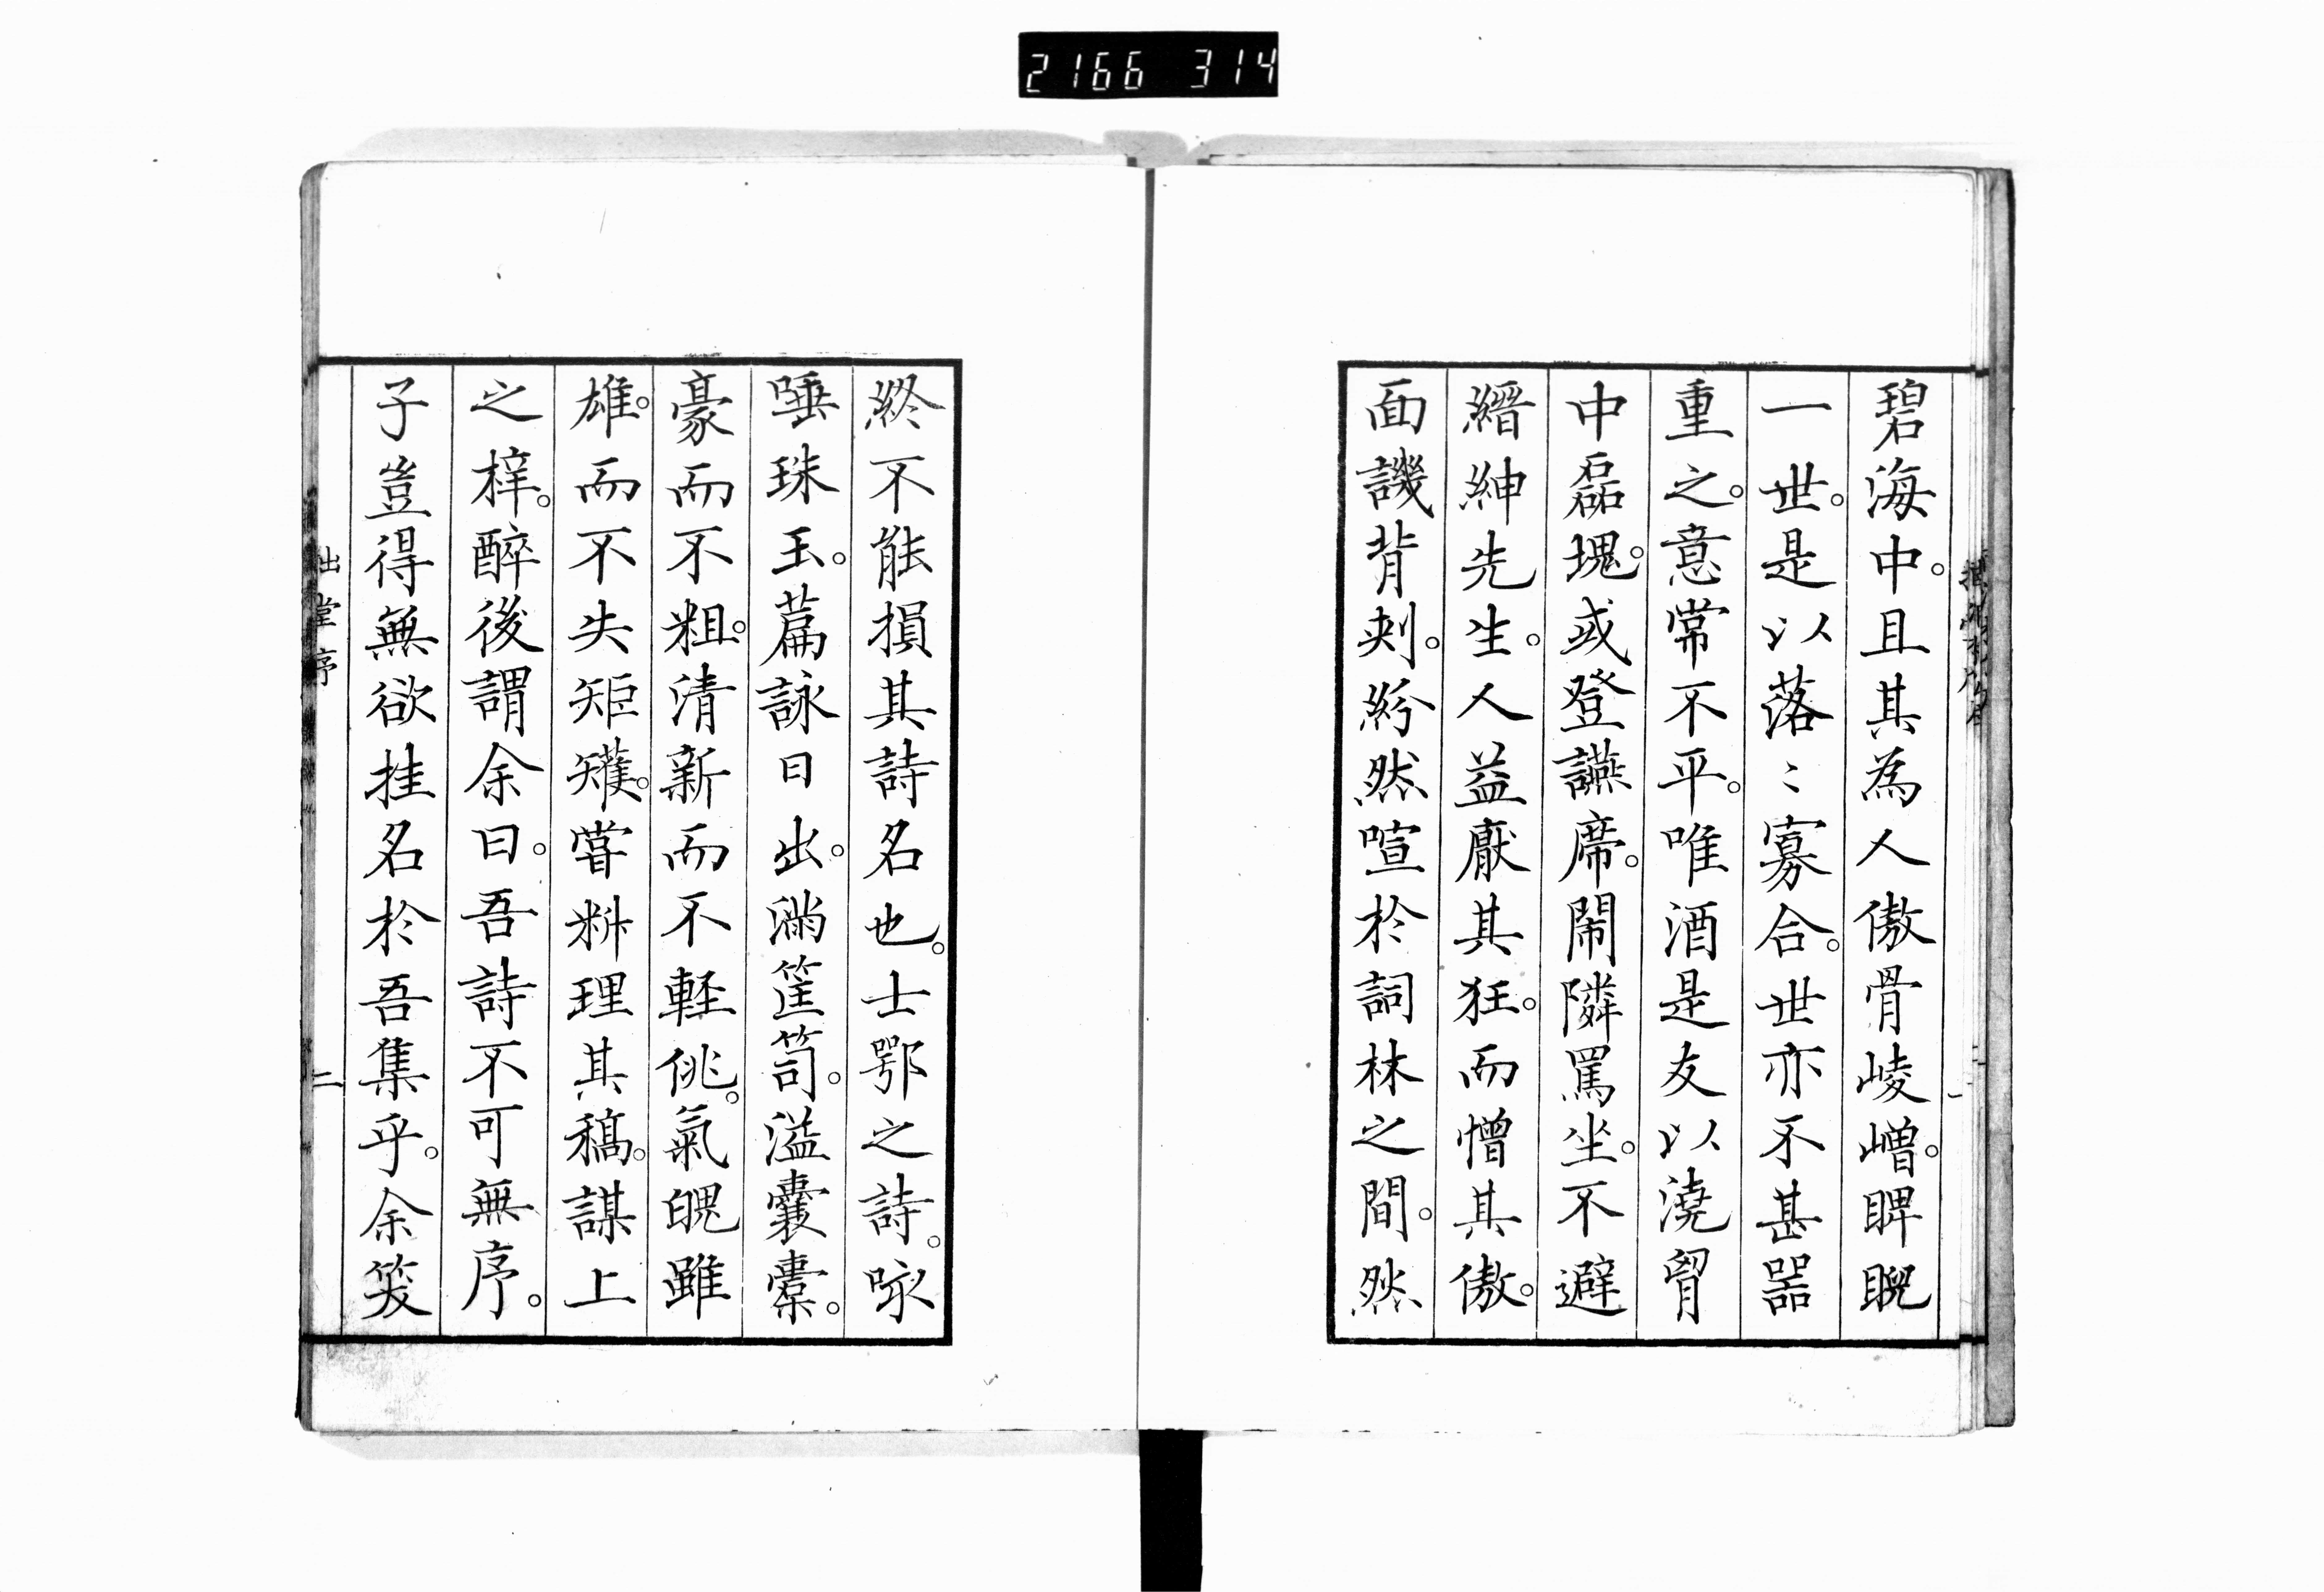 2166 314
碧海中。且其為人傲骨崚嶒。睥睨
一世。是以落〻寡合。世亦不甚器
重之。意常不平。唯酒是友以澆胷
中磊塊。或登讌席。鬧隣罵坐。不避
縉紳先生。人益厭其狂。而憎其傲。
面譏背刺。紛然喧於詞林之間。然
終不能損其詩名也。士鄂之詩。咏
唾珠玉。篇詠日出。滿筐笥。溢囊橐。
豪而不粗。清新而不輕佻。氣魄雖
雄。而不失矩矱。嘗料理其稿。謀上
之梓。醉後謂余曰。吾詩不可無序。
子豈得無欲挂名於吾集乎。余笑
出堂序
二